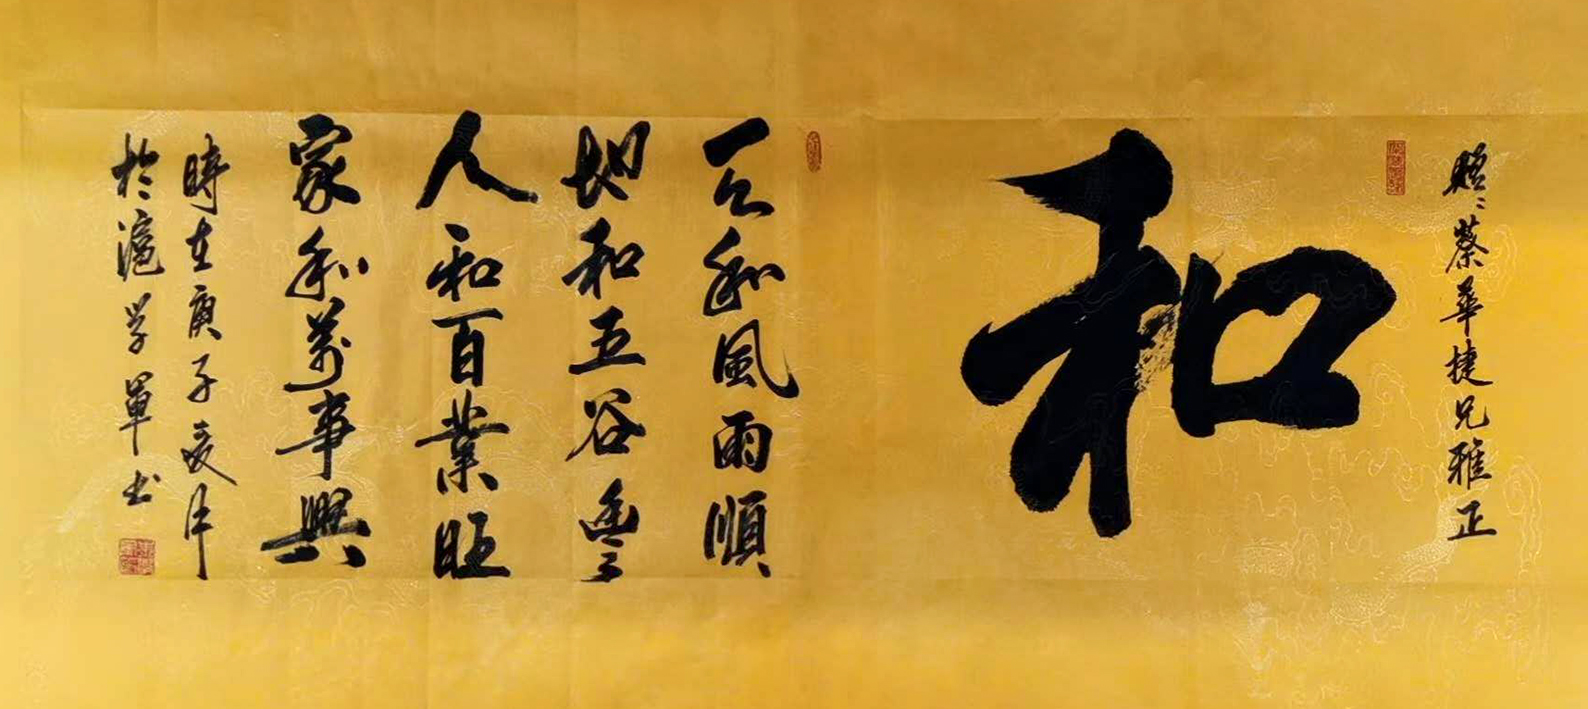 赠:蔡華捷兄雅正
和
天和風雨順
地和五谷豐
人和百業旺
家和萬事興
時在庚子夏月
於滬学軍书